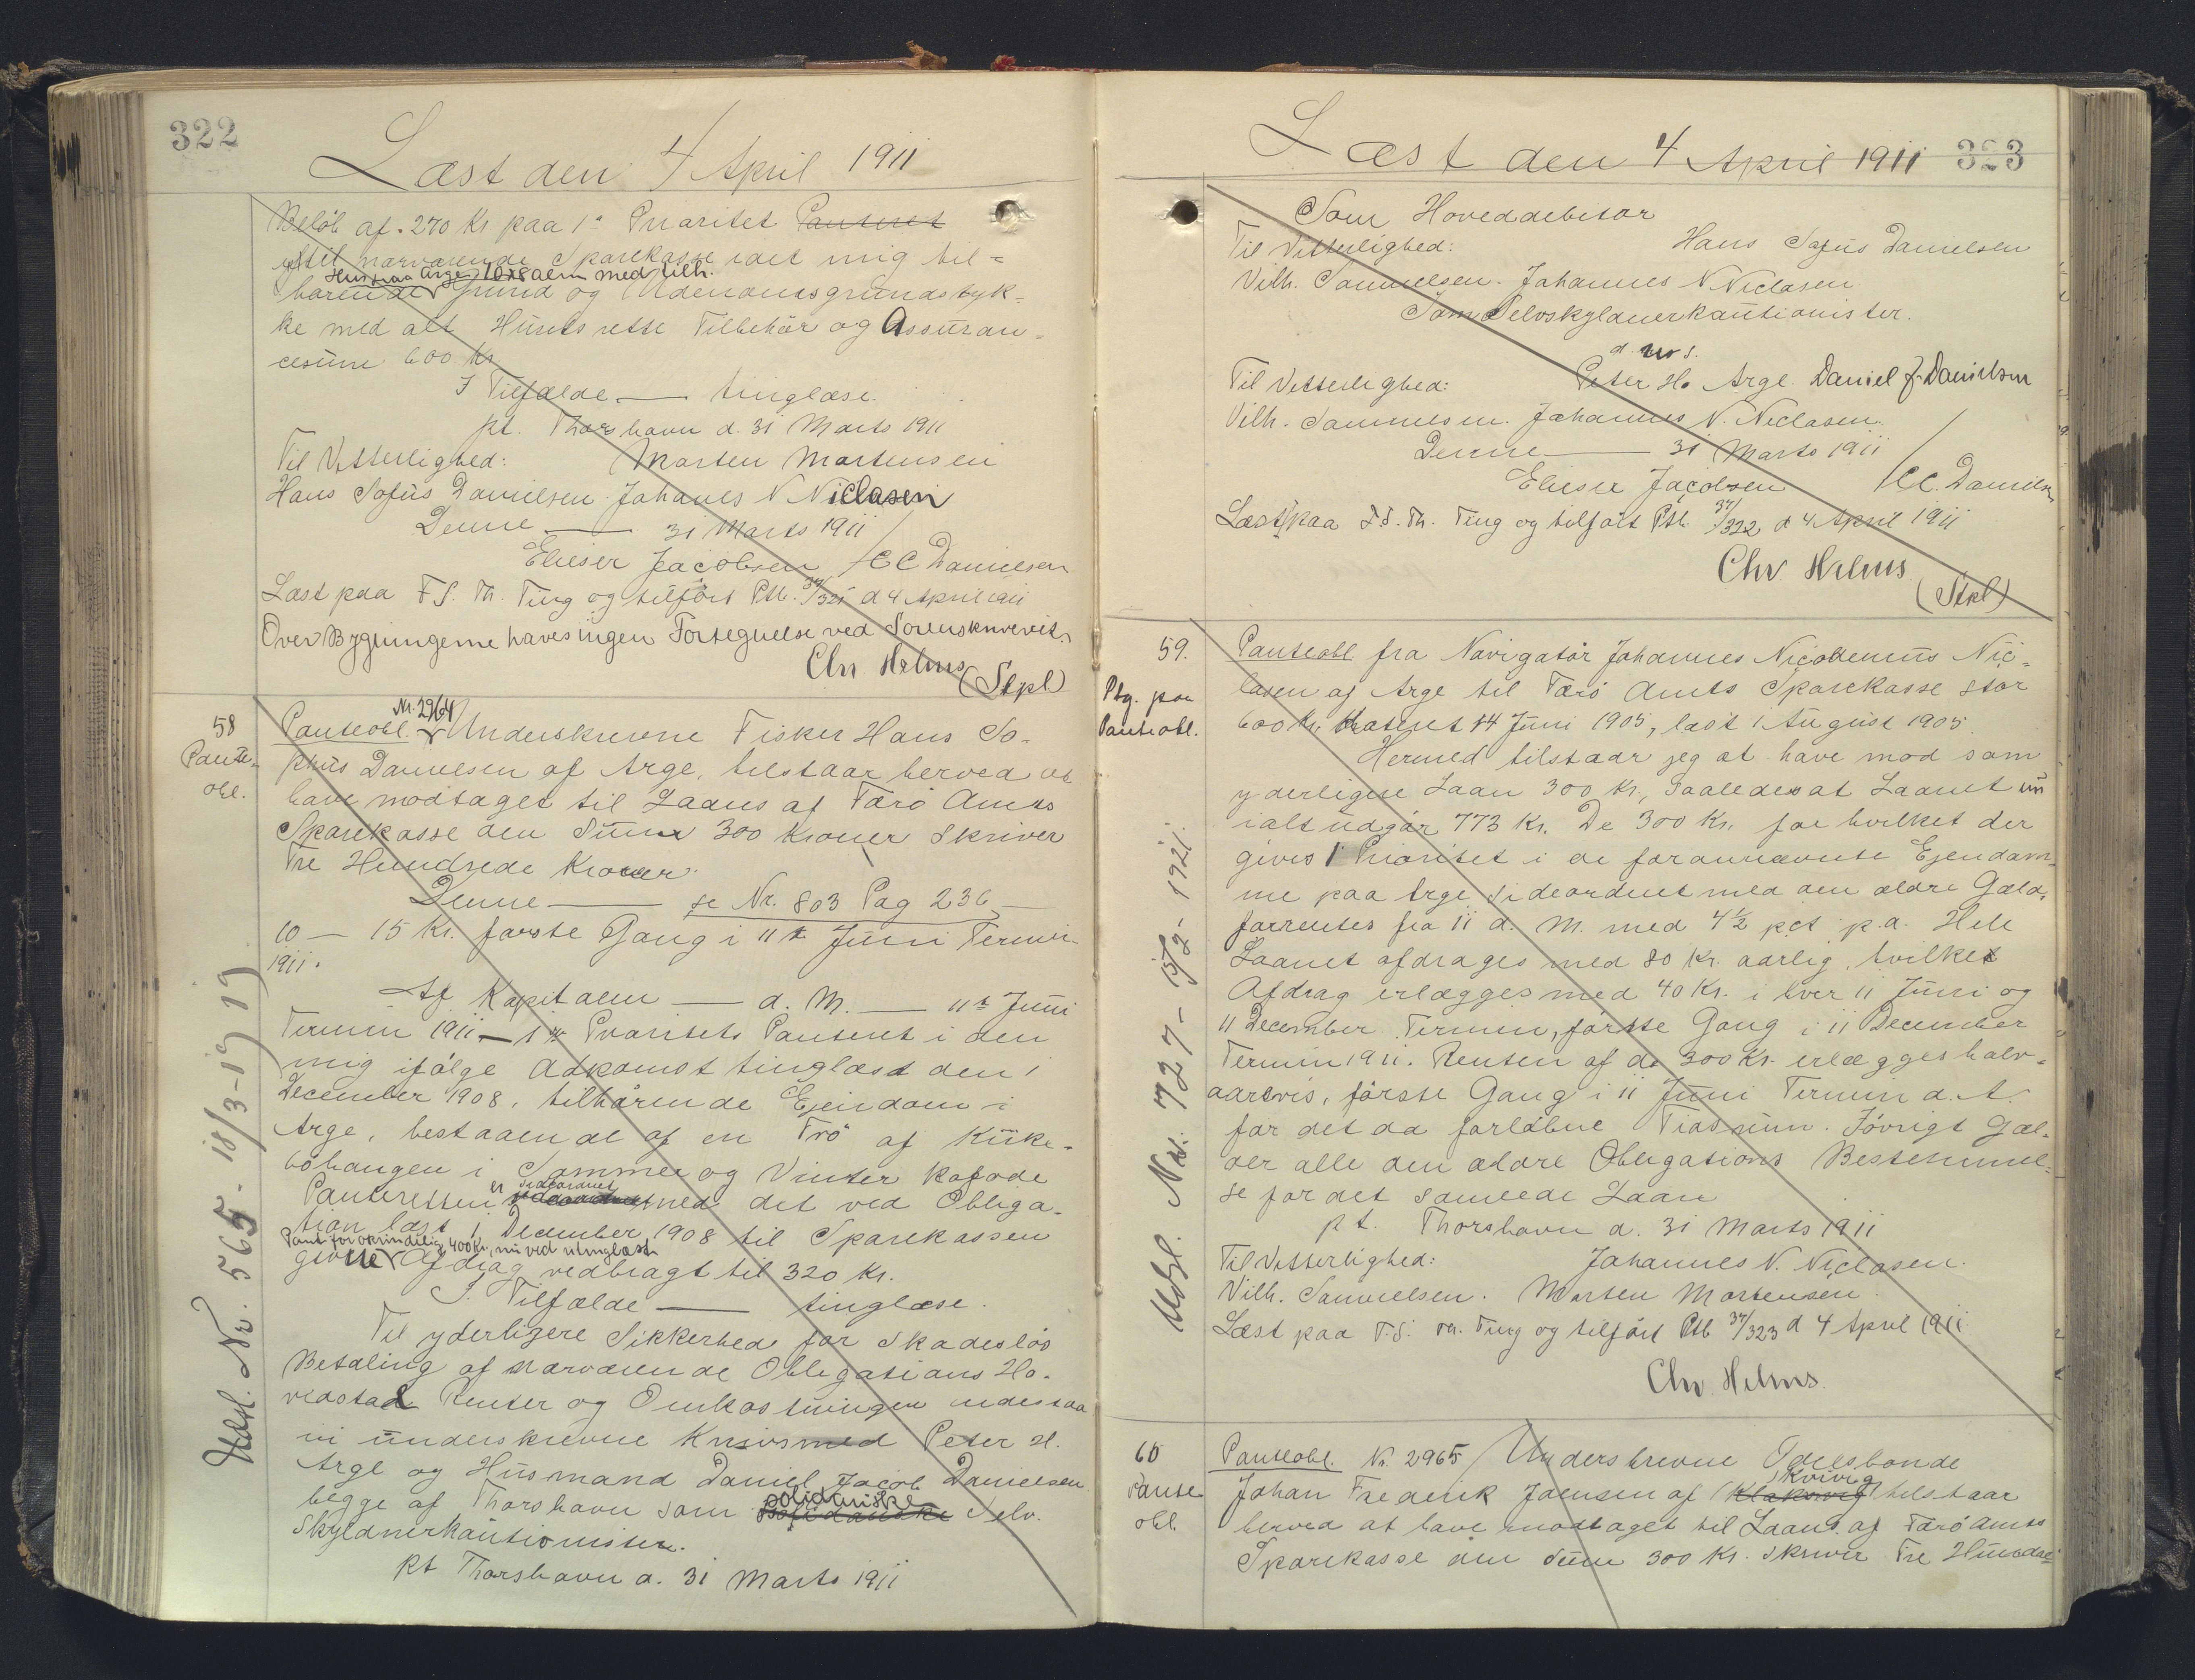 322
Læst den 4 April 1911
Beløb af 270 Kr paa 1ste Prioritet Panteret
til nærværende Sparekasse idet mig til=
Hus paa Arge 10x8 alen med tilh.
hørende Grund og Udenomsgrundstyk=
ke med alt Husets rette Tilbehør og Assuran=
cesum 600 Kr
I Tilfælde — tinglæse.
pt. Thorshavn d. 31 Marts 1911
Til Vitterlighed: Morten Mortensen
Hans Sofus Danielsen. Johanes N Niclasen
Denne — 31 Marts 1911
Elieser Jacobsen / C C Danielsen
Læst paa F. S. Th. Ting og tilført Ptb. 34/321 d 4 April 1911
Over Bygningerne haves ingen Fortegnelse ved Sorenskriveriet.
Chr Helms (Stpl)
58
Pante-
obl.
Panteobl. Nr. 2964 Underskrevne Fisker Hans So-
phus Danielsen af Arge, tilstaar herved at
have modtaget til Laans af Færø Amts
Sparekasse den Sum 300 Kroner skriver
Tre Hundrede Kroner.
Denne — se Nr. 803 Pag 236 —
10 — 15 Kr. første Gang i 11te Juni Termin
1911.
Af Kapitalen — d. M. — 11te Juni
Termin 1911 — 1ste Prioritets Panteret i den
mig ifølge Adkomst tinglæst den 1
December 1908, tilhørende Ejendom i
Arge, bestaaende af en Trø af Kúke-
bøhaugen i Sommer og Vinter
Panteretten er sideordnet med det ved Obliga-
tion læst 1 December 1908 til Sparekassen
Pant for oprindelig 400 Kr, nu ved utinglæst
givne Afdrag nedbragt til 320 Kr.
I Tilfælde — tinglæse.
Til yderligere Sikkerhed for skadesløs
Betaling af nærværende Obligations Ho-
vedstol Renter og Omkostninger indestaa
vi underskrevne Peter H.
Arge og Husmand Daniel Jacob Danielsen
begge af Thorshavn som solidariske Selv-
skyldnerkautionister.
pt Thorshavn d. 31 Marts 1911
Udsl. Nr. 565 - 18/3-1919
Læst den 4 April 1911 323
Som Hoveddebitor
Til Vitterlighed: Hans Sofus Danielsen
Vilh. Samuelsen. Johannes N Niclasen
Som Selvskyldnerkautionister.
Til Vitterlighed: Peter H. Arge. Daniel J. Danielsen
Vilh. Samuelsen. Johannes N. Niclasen
Denne — 31 Marts 1911
Elieser Jacobsen / C C. Danielsen
Læst paa F. S. Th. Ting og tilført Ptb 34/322 d 4 April 1911
Chr Helms
(Stpl)
59.
Ptg. paa
Panteobl.
Panteobl. fra Navigatør Johannes Nicodemus Nic-
lasen af Arge til Færø Amts Sparekasse stor
600 Kr, dateret 14 Juni 1905, læst 1 August 1905
Hermed tilstaar jeg at have mod som
yderligere Laan 300 Kr., saaledes at Laanet nu
ialt udgør 773 Kr. De 300 Kr. for hvilket der
gives 1 Prioritet i de forannævnte Ejendom-
me paa Arge sideordnet med den ældre Gæld,
forrentes fra 11 d. M. med 4½ pct p.a. Hele
Laanet afdrages med 80 Kr. aarlig, hvilket
Afdrag erlægges med 40 Kr. i hver 11 Juni og
11 December Termin, første Gang i 11 December
Termin 1911. Renten af de 300 Kr. erlægges halv-
aarsvis, første Gang i 11 Juni Termin d. A.
for det da forløbne Tidsrum. Iøvrigt gæl-
der alle den ældre Obligations Bestemmel-
se for det samlede Laan
pt. Thorshavn d. 31 Marts 1911
Til Vitterlighed: Johannes N. Niclasen.
Vilh. Samuelsen. Morten Mortensen
Læst paa F. S. Th. Ting og tilført Ptb 34/323 d 4 April 1911
Chr. Helms.
Udsl. Nr. 727 - 15/2 - 1921.
60
Pante
obl.
Panteobl. Nr. 2965 / Underskrevne Odelsbonde
Johan Frederik Joensen af Klaksvig Kvivig tilstaar
herved at have modtaget til Laans af Færø Amts
Sparekasse den Sum 300 Kr. skriver Tre Hundrede